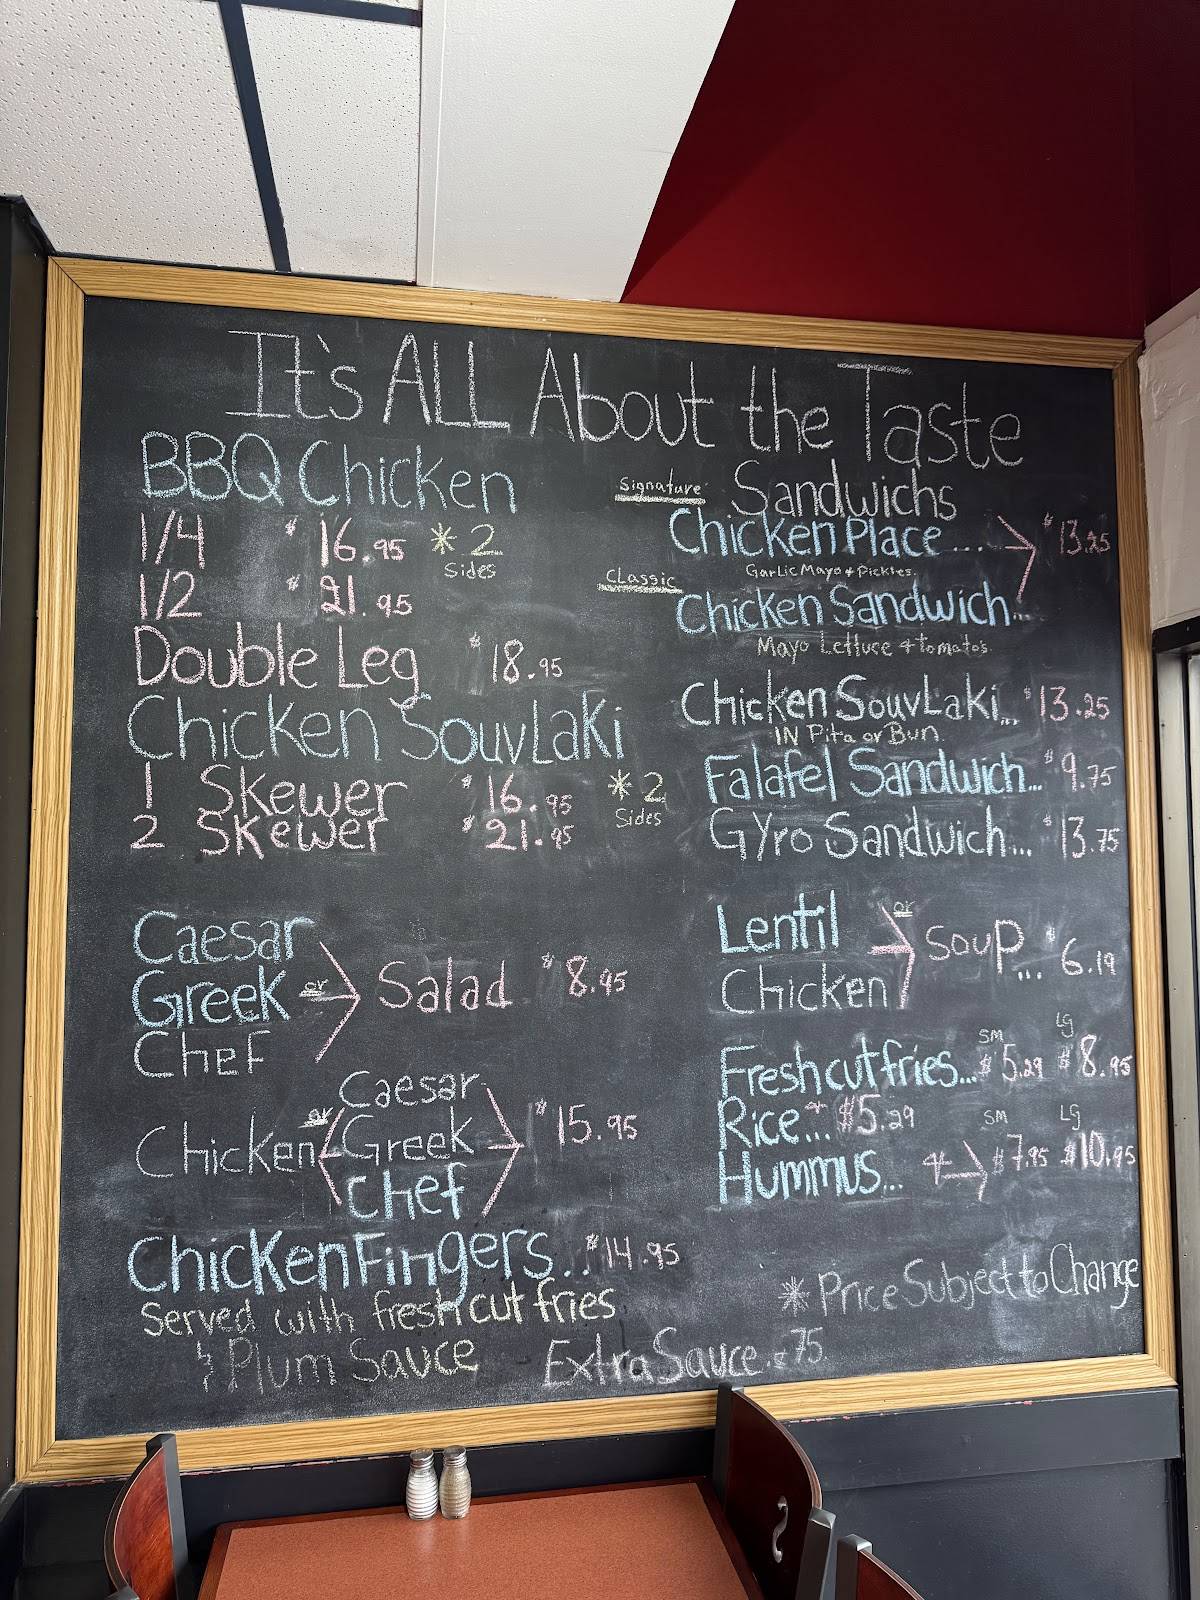 It's ALL About the Taste
BBQ Chicken
1/4 $ 16.95 * 2 Sides
1/2 $ 21.95
Double Leg $ 18.95
Chicken SouvLaki
1 Skewer $ 16.95 * 2 Sides
2 Skewer $ 21.95
Caesar
Greek or Salad $ 8.95
Chef
Caesar
Chicken or Greek $ 15.95
Chef
Chicken Fingers... $14.95
Served with fresh cut fries
& Plum Sauce Extra Sauce .75
Signature Sandwichs
Chicken Place ... $13.25
Garlic Mayo + Pickles.
Classic
Chicken Sandwich...
Mayo Lettuce + tomatos.
Chicken SouvLaki... $13.25
IN Pita or Bun.
Falafel Sandwich... $9.75
Gyro Sandwich... $13.75
Lentil or
Chicken Soup... $6.19
SM LG
Fresh cut fries... $5.29 $8.95
Rice... $5.29
SM LG
Hummus... $7.95 $10.95
* Price Subject to Change